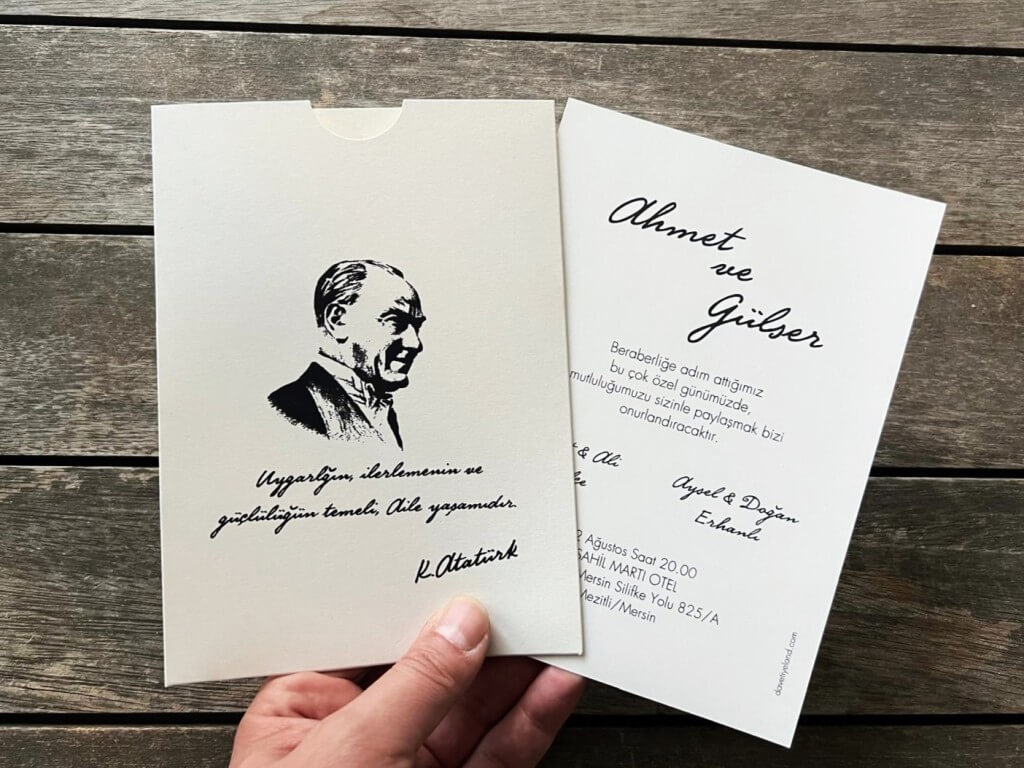 Uygarlğın, ilerlemenin ve
güçlülüğün temeli, Aile yaşamıdır.
K. Atatürk
Ahmet
ve
Gülser
Beraberliğe adım attığımız
bu çok özel günümüzde,
mutluluğumuzu sizinle paylaşmak bizi
onurlandıracaktır.
& Ali
Aysel & Doğan
Erhanlı
Ağustos Saat 20.00
SAHİL MARTI OTEL
Mersin Silifke Yolu 825/A
Mezitli/Mersin
davetiyeland.com